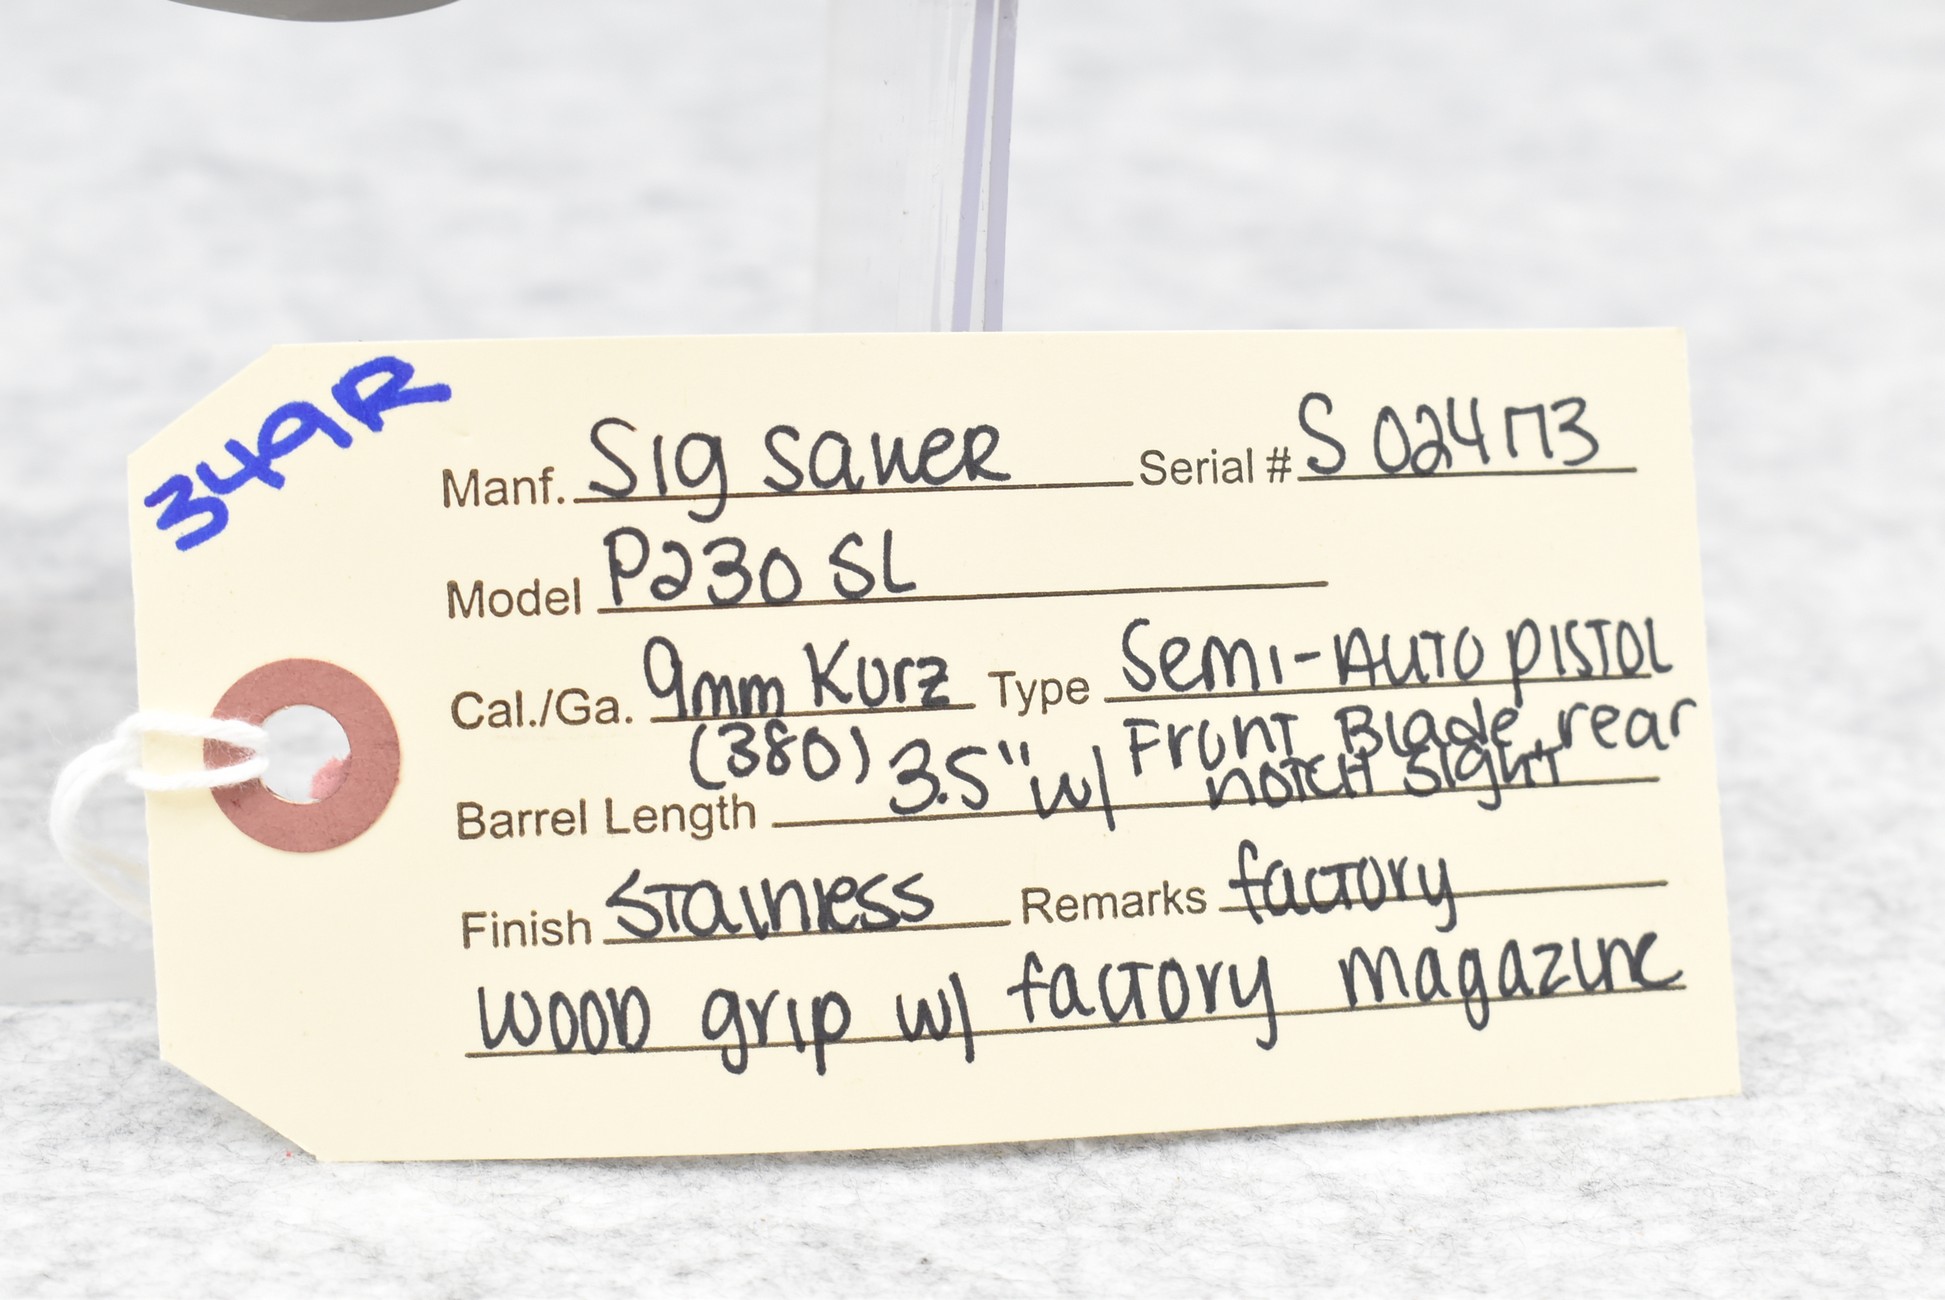 349R
Manf. Sig Sauer Serial # S 024173
Model P230 SL
Cal./Ga. 9mm Kurz Type Semi-Auto Pistol
(380)
Barrel Length 3.5" w/ Front Blade, rear
notch sight
Finish Stainless Remarks factory
wood grip w/ factory magazine